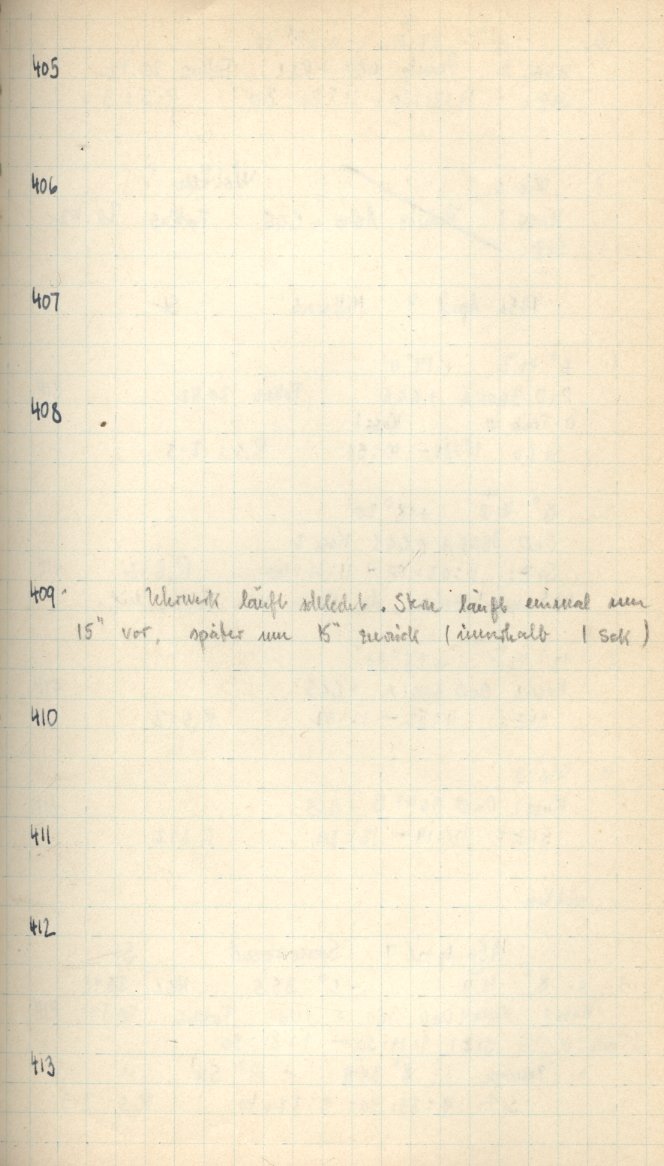 405
406
407
408
409. Uhrwerk läuft schlecht. läuft einmal um
15" vor, später um 15" zurück (innerhalb 1 Sek)
410
411
412
413